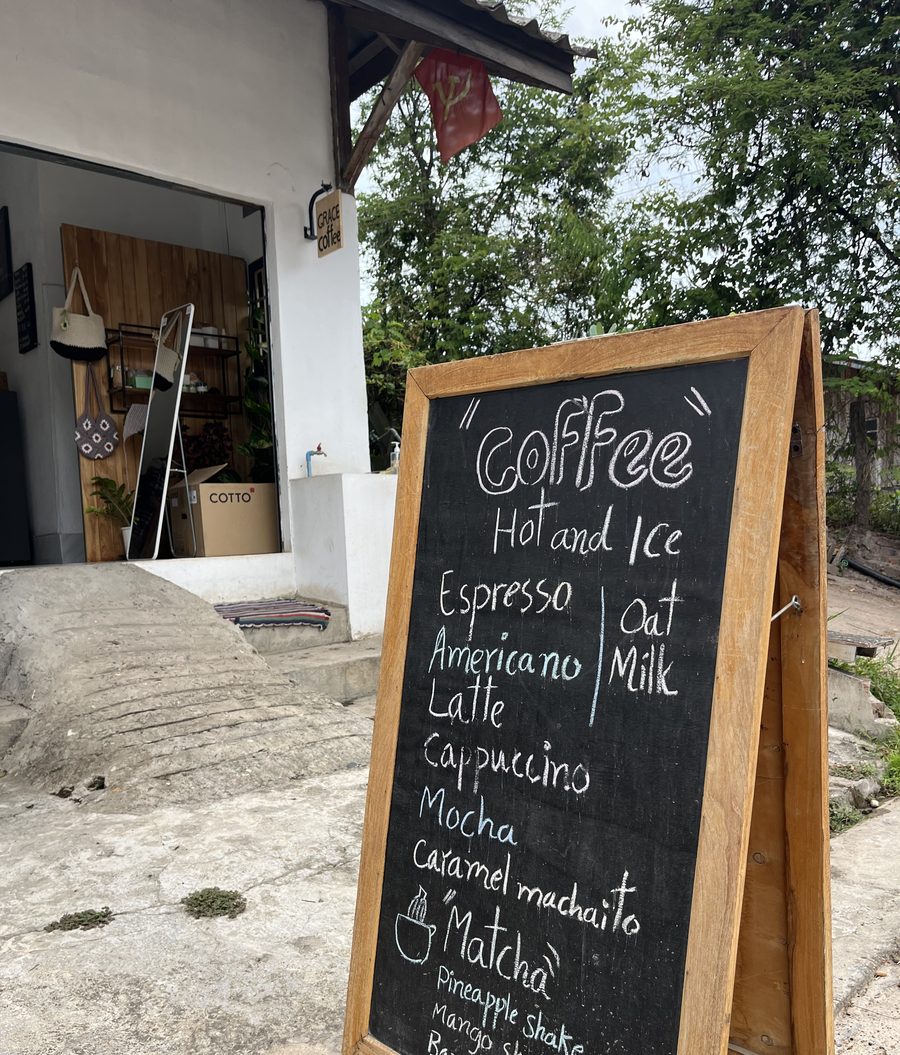 GRACE
coffee
COTTO
"coffee"
Hot and Ice
Espresso
Americano
Latte
Cappuccino
Mocha
Caramel machaito
"Matcha"
Pineapple shake
Mango
Oat
Milk